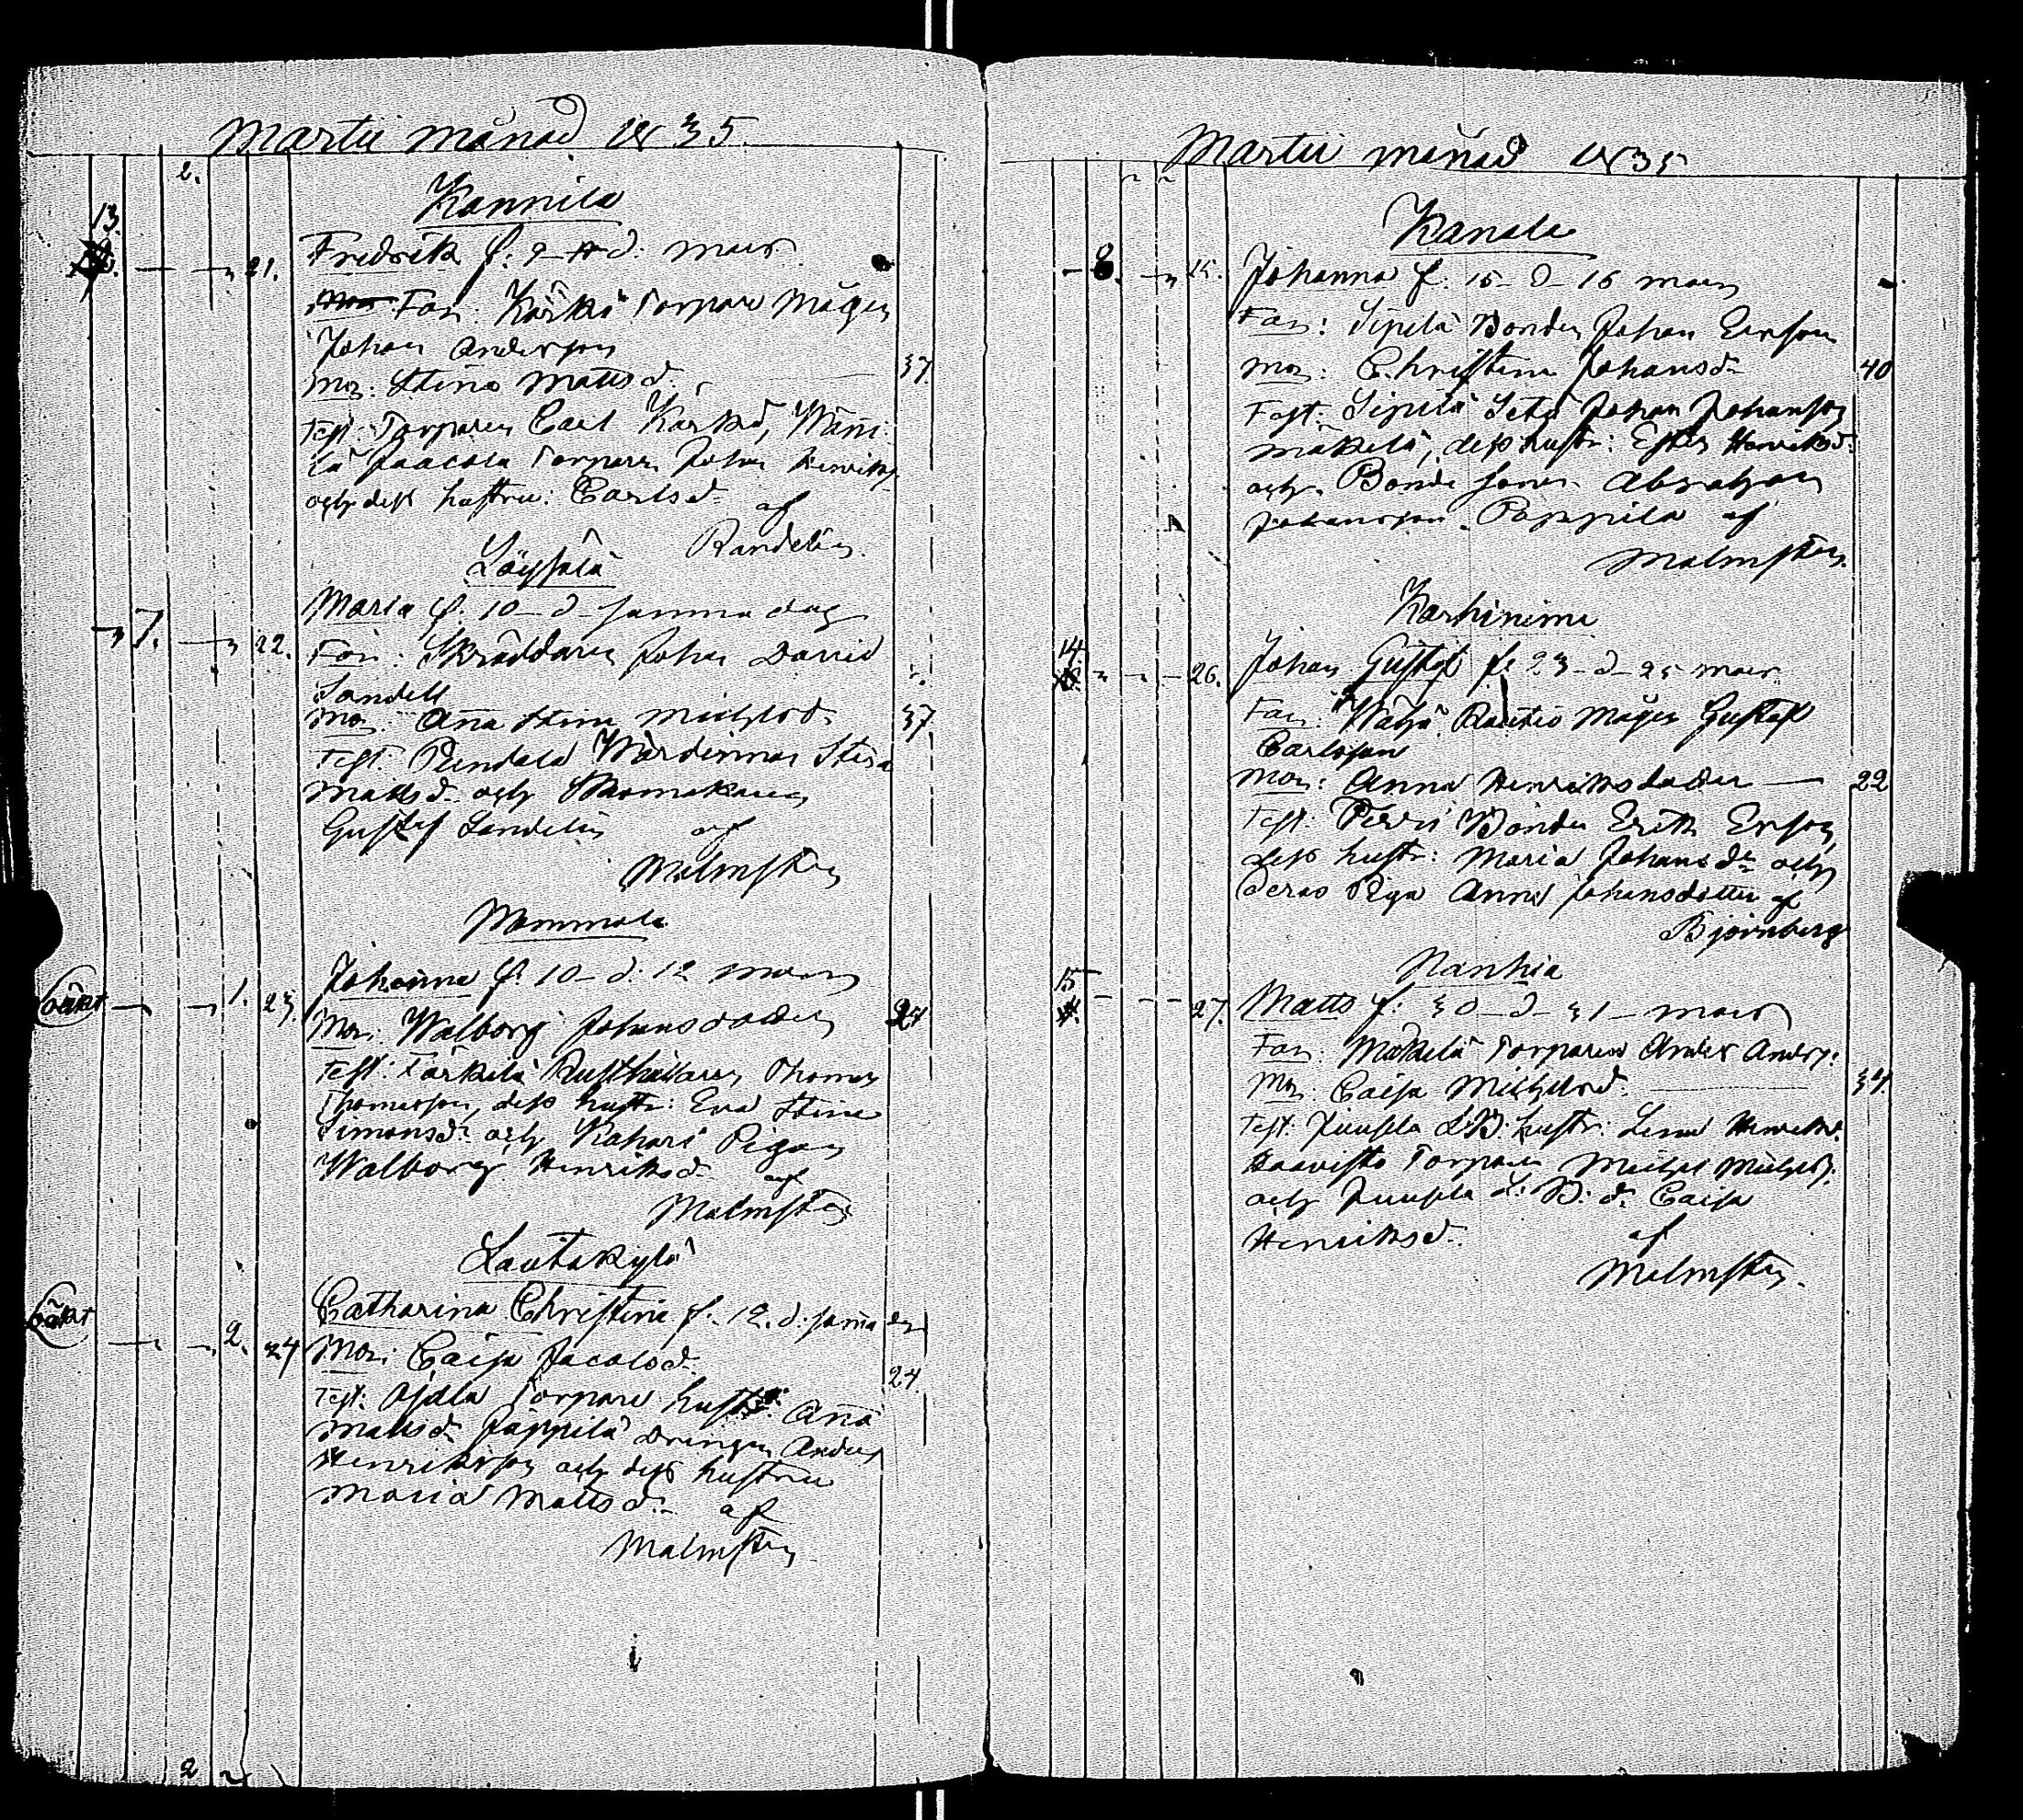 Martii månad 1835.
2.
Kannila
13.
21. Fredrik f. 9 d. mars
Far: Kärki Torpare Mågen
Johan Andersson
Mor: Stina Mattsd. 37.
Test: Torparen Carl Kärki, Wäni-
lä Jaacola Torparen Johan Henriks.
och dess hustru: Carlsd. af
Randelin.
Löysälä
Maria f. 10 d. samma dag
7. 22. Far: Skräddaren Johan David
Sandell
Mor: Anna Stina Michelsd. 37.
Test: Wärdinnan Stina
Mattsd. och Skomakaren
Gustaf Sandelin af
Malmsten
Mommola
Johanna f. 10 d. 12 mars
oäkt 1. 23. Mor: Walborg Johansdotter 24
Test: Tärkilä Rusthållaren Thomas
Thomasson, dess hustr: Eva Stina
Simonsd. och Kahari Pigan
Walborg Henriksd. af
Malmsten
Lautakylä
Catharina Christina f. 12. d. sama dag
oäkt 2. 24 Mor: Caisa Jacobsd. 24.
Test: Ojala Torpare hustr: Anna
Mattsd. Jäppilä Drengen Anders
Henriksson och dess hustru
Maria Mattsd. af
Malmsten
Martii månad 1835
Kanala
8. 25. Johanna f. 15 d. 16 mars
Far: Sipilä Bonden Johan Ersson
Mor: Christina Johansd. 40
Test: Sipilä Johan Johansson
Mäkelä, dess hustr: Ester Henriksd.
och Bonde sonen Abraham
Johansson Pappila af
Malmsten.
Karhiniemi
14
26. Johan Gustaf f. 23 d. 25 mars.
Far: Rautio Mågen Gustaf
Carlsson
Mor: Anna Henriksdotter 22
Test: Perri Bonden Erik Ersson
dess hustr: Maria Johansdr. och
deras Piga Anna Johansdotter af
Björnberg
Nanhia
15
27. Matts f. 30 d. 31 mars
Far: Mäkelä Torparen Anders Anders.
Mor: Caisa Michelsd. 34.
Test: Juusela S.B. hustr: Lena Henriksd.
Haavisto Torparen Michel Michels.
och Juusela S.B. dr. Caisa
Henriksd. af
Malmsten.
2